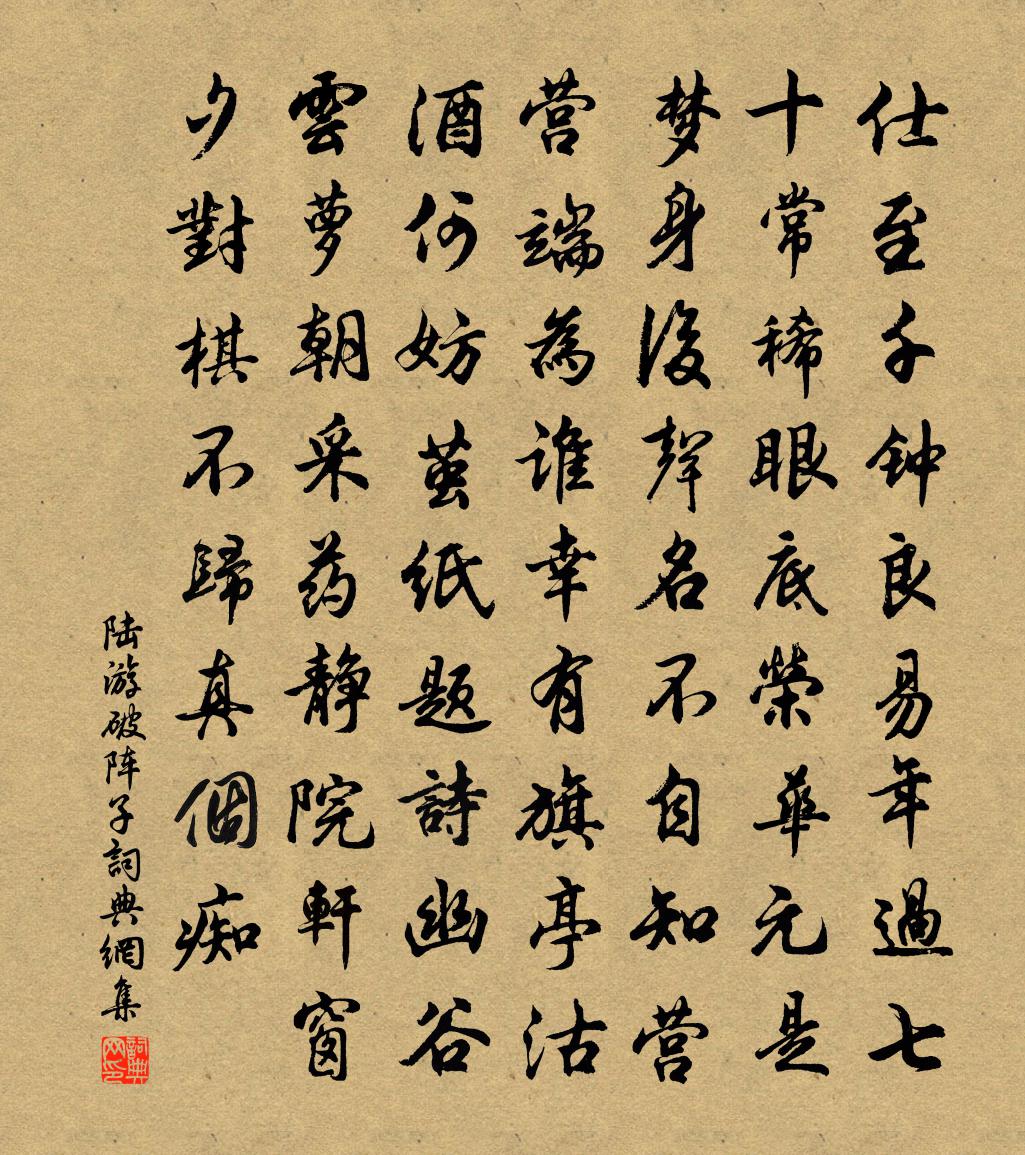 仕至千钟良易年過七
十常稀眼底榮華元是
梦身後聲名不自知营
营端為谁幸有旗亭沽
酒何妨茧纸题詩幽谷
雲萝朝采药静院軒窗
夕對棋不歸真個痴
陆游破阵子詞典網集
詞典网印